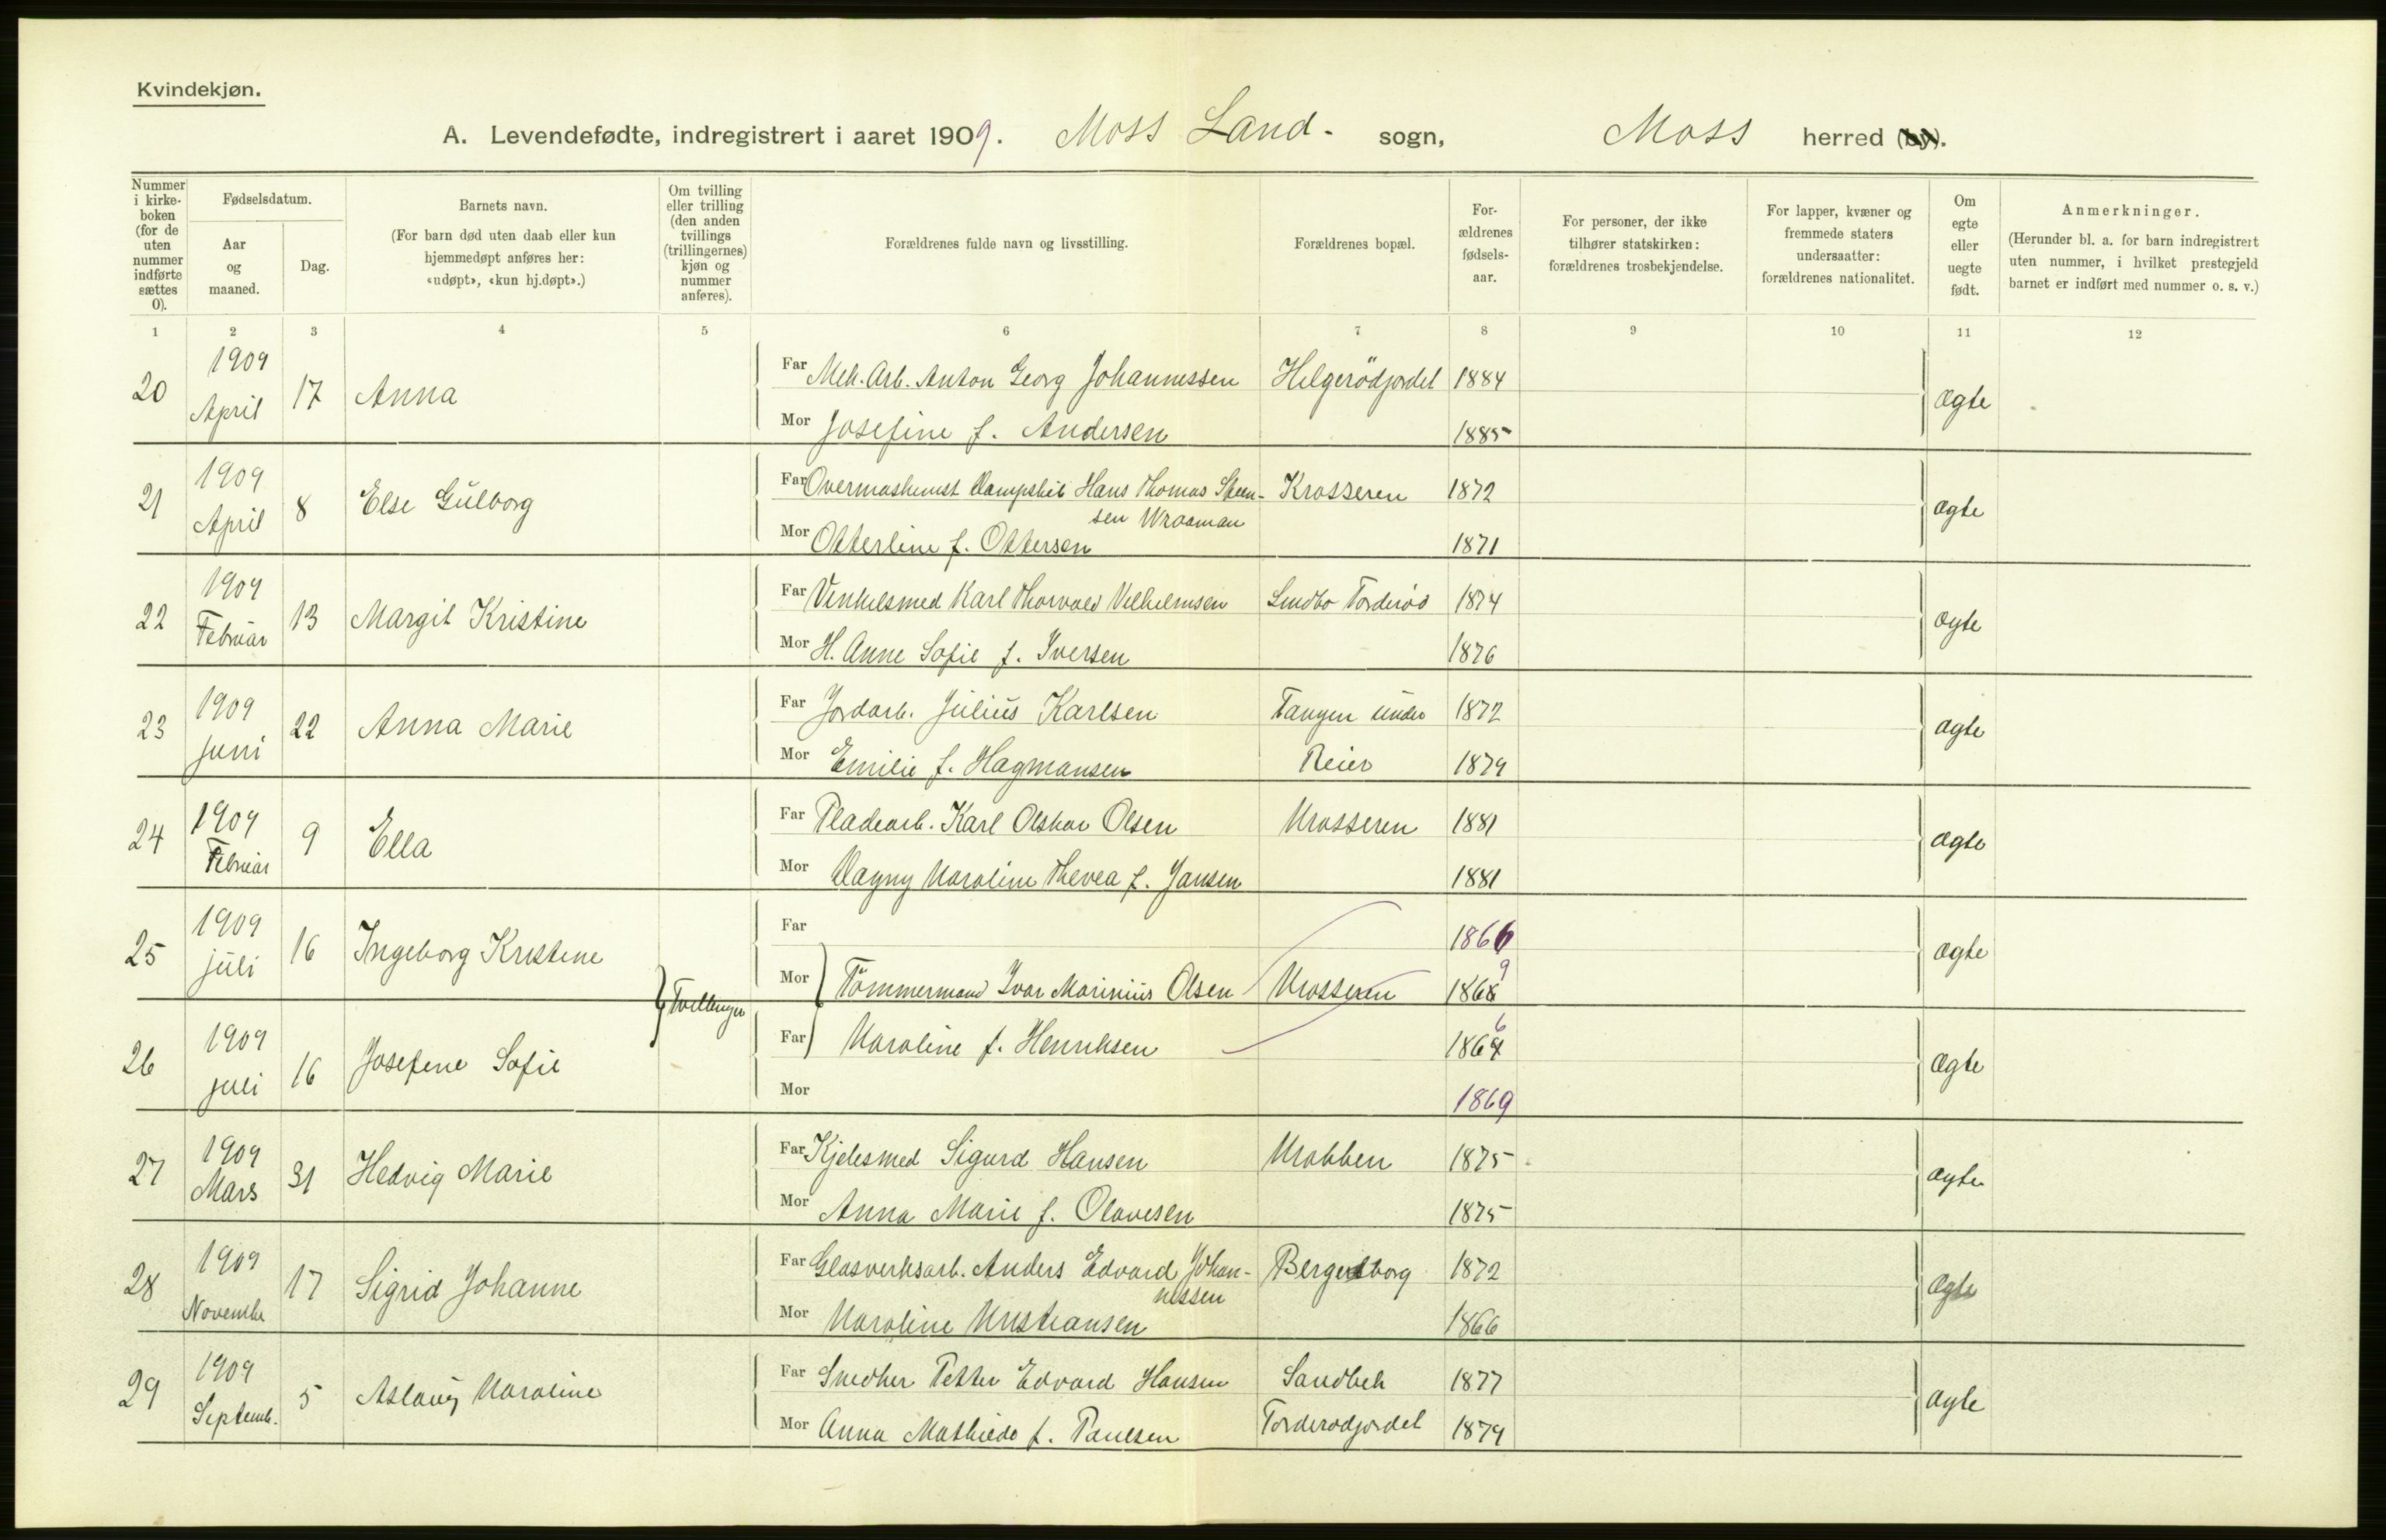 Kvindekjøn.
A. Levendefødte, indregistrert i aaret 1909. Moss Land- sogn, Moss herred (by).
Nummer i kirke-boken (for de uten nummer indførte sættes 0).
Fødselsdatum.
Aar og maaned.
Dag.
Barnets navn.
(For barn død uten daab eller kun hjemmedøpt anføres her: «udøpt», «kun hj.døpt».)
Om tvilling eller trilling (den anden tvillings (trillingernes) kjøn og nummer anføres).
Forældrenes fulde navn og livsstilling.
Forældrenes bopæl.
For-ældrenes fødsels-aar.
For personer, der ikke tilhører statskirken: forældrenes trosbekjendelse.
For lapper, kvæner og fremmede staters undersaatter: forældrenes nationalitet.
Om egte eller uegte født.
Anmerkninger.
(Herunder bl. a. for barn indregistrert uten nummer, i hvilket prestegjeld barnet er indført med nummer o. s. v.)
1 2 3 4 5 6 7 8 9 10 11 12
20 1909 April 17 Anna Far Mek. Arb. Anton Georg Johannessen Helgerödjordet 1884 Ægte
Mor Josefine f. Andersen 1885
21 1909 April 8 Else Gulborg Far Overmaskinist Dampskib Hans Thomas Steen- Krosseren 1872 ægte
sen Wraaman
Mor Otterline f. Ottersen 1871
22 1909 Februar 13 Margit Kristine Far Vinkelsmed Karl Thorvald Vilhelmsen Lindbo Torderød 1874 ægte
Mor H. Anne Sofie f. Iversen 1876
23 1909 Juni 22 Anna Marie Far Jordarb. Julius Karlsen Tangen under 1872 ægte
Mor Emilie f. Hagmansen Reier 1879
24 1909 Februar 9 Ella Far Pladearb. Karl Olskar Olsen Krosseren 1881 Ægte
Mor Dagny Karoline Thevea f. Jansen 1881
25 1909 Juli 16 Ingeborg Kristine Far 1866 ægte
Tvillinger Mor Tömmermand Ivar Marinius Olsen Krosseren 1869
26 1909 Juli 16 Josefine Sofie Far Karoline f. Henriksen 1866 Ægte
Mor 1869
27 1909 Mars 31 Hedvig Marie Far Kjelesmed Sigurd Hansen Krabben 1875 ægte
Mor Anna Marie f. Olavesen 1875
28 1909 Novembe 17 Sigrid Johanne Far Glasverksarb. Anders Edvard Johan- Bergersborg 1872 Ægte
nessen
Mor Karoline Kristiansen 1866
29 1909 Septemb. 5 Aslaug Karoline Far Snedker Petter Edvard Hansen Sandbek 1877 ægte
Mor Anna Mathilde f. Paulsen Torderødjordet 1879